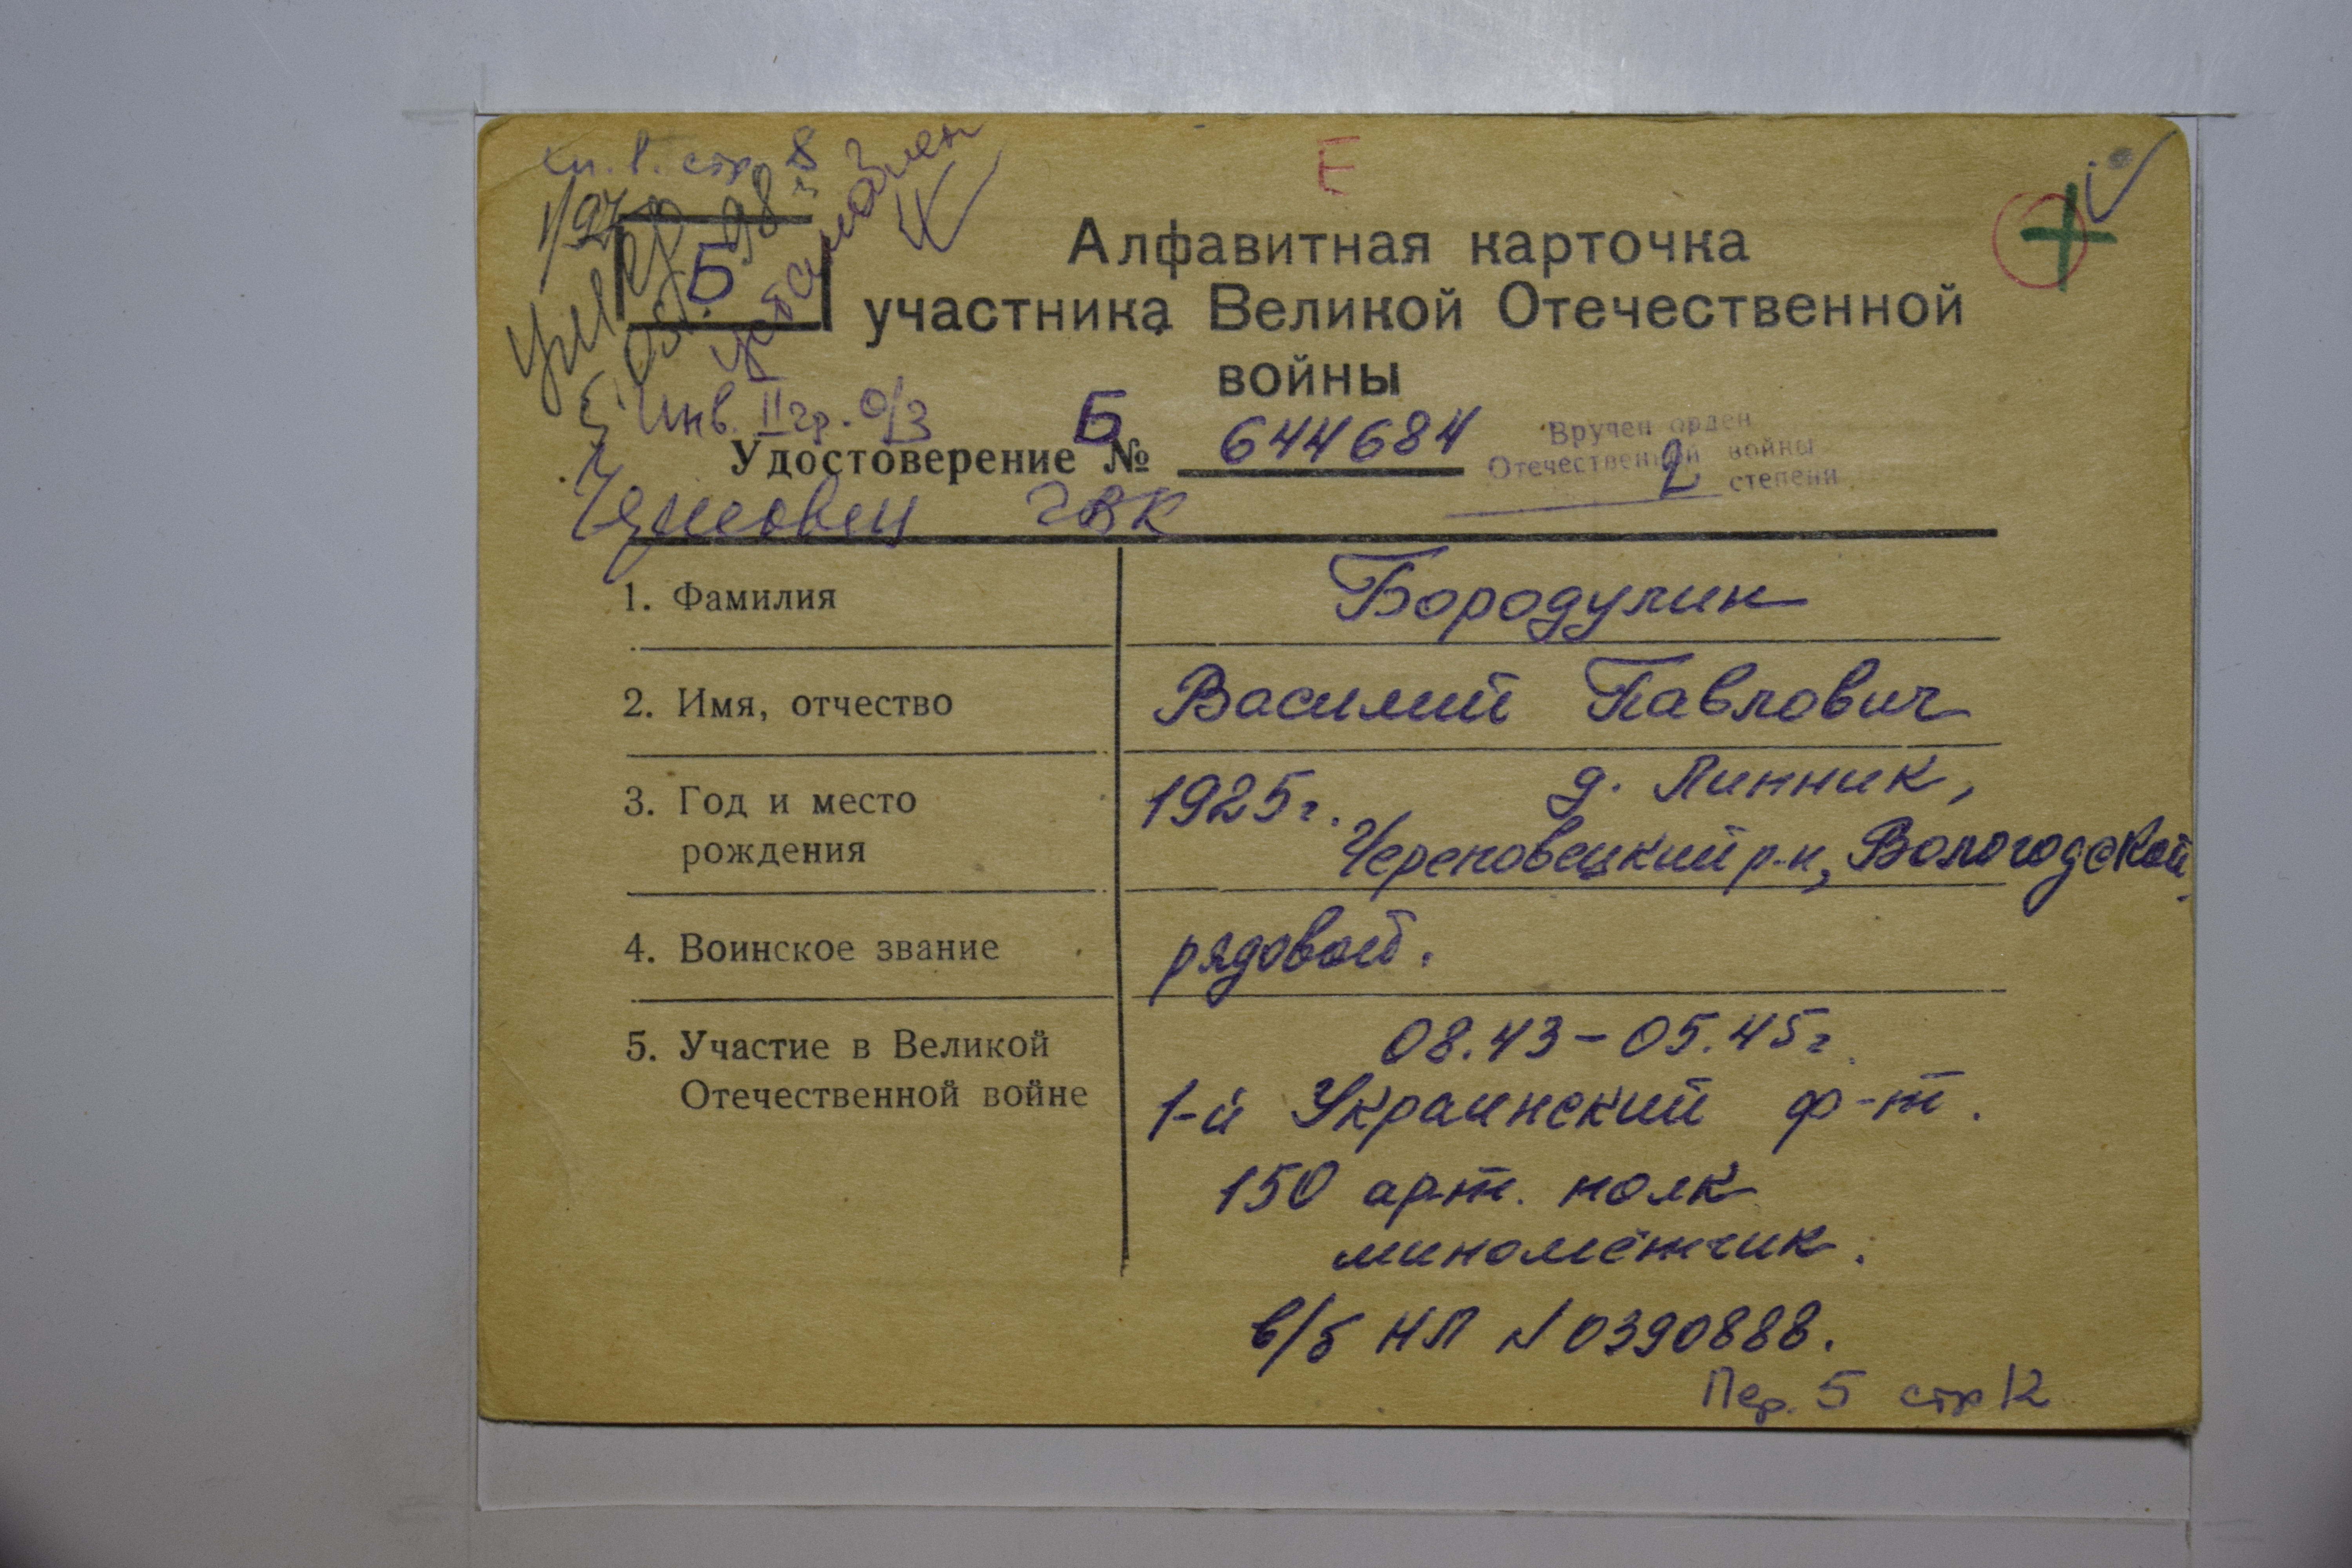 кн. 1. стр. 8
Е
1/97
умер
98 г
Б
Алфавитная карточка
участника Великой Отечественной
войны
Инв. II гр. О/З
Удостоверение Б № 644684
Вручен орден
Отечественной войны
2 степени
ГВК
1. Фамилия Бородулин
2. Имя, отчество Василий Павлович
3. Год и место 1925 г. д. Линник,
рождения Череповецкий р-н, Вологодской
4. Воинское звание рядовой.
5. Участие в Великой 08.43 - 05.45 г.
Отечественной войне 1-й Украинский ф-т.
150 арт. полк
миномётчик.
в/б НП № 0390888.
Пер. 5 стр 12